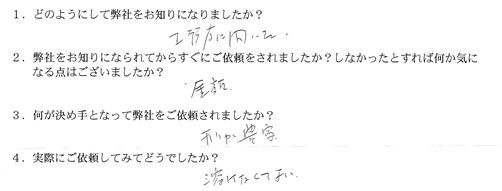 1．どのようにして弊社をお知りになりましたか？
に聞いた
2．弊社をお知りになられてからすぐにご依頼をされましたか？しなかったとすれば何か気に
なる点はございましたか？
金額
3．何が決め手となって弊社をご依頼されましたか？
豊富
4．実際にご依頼してみてどうでしたか？